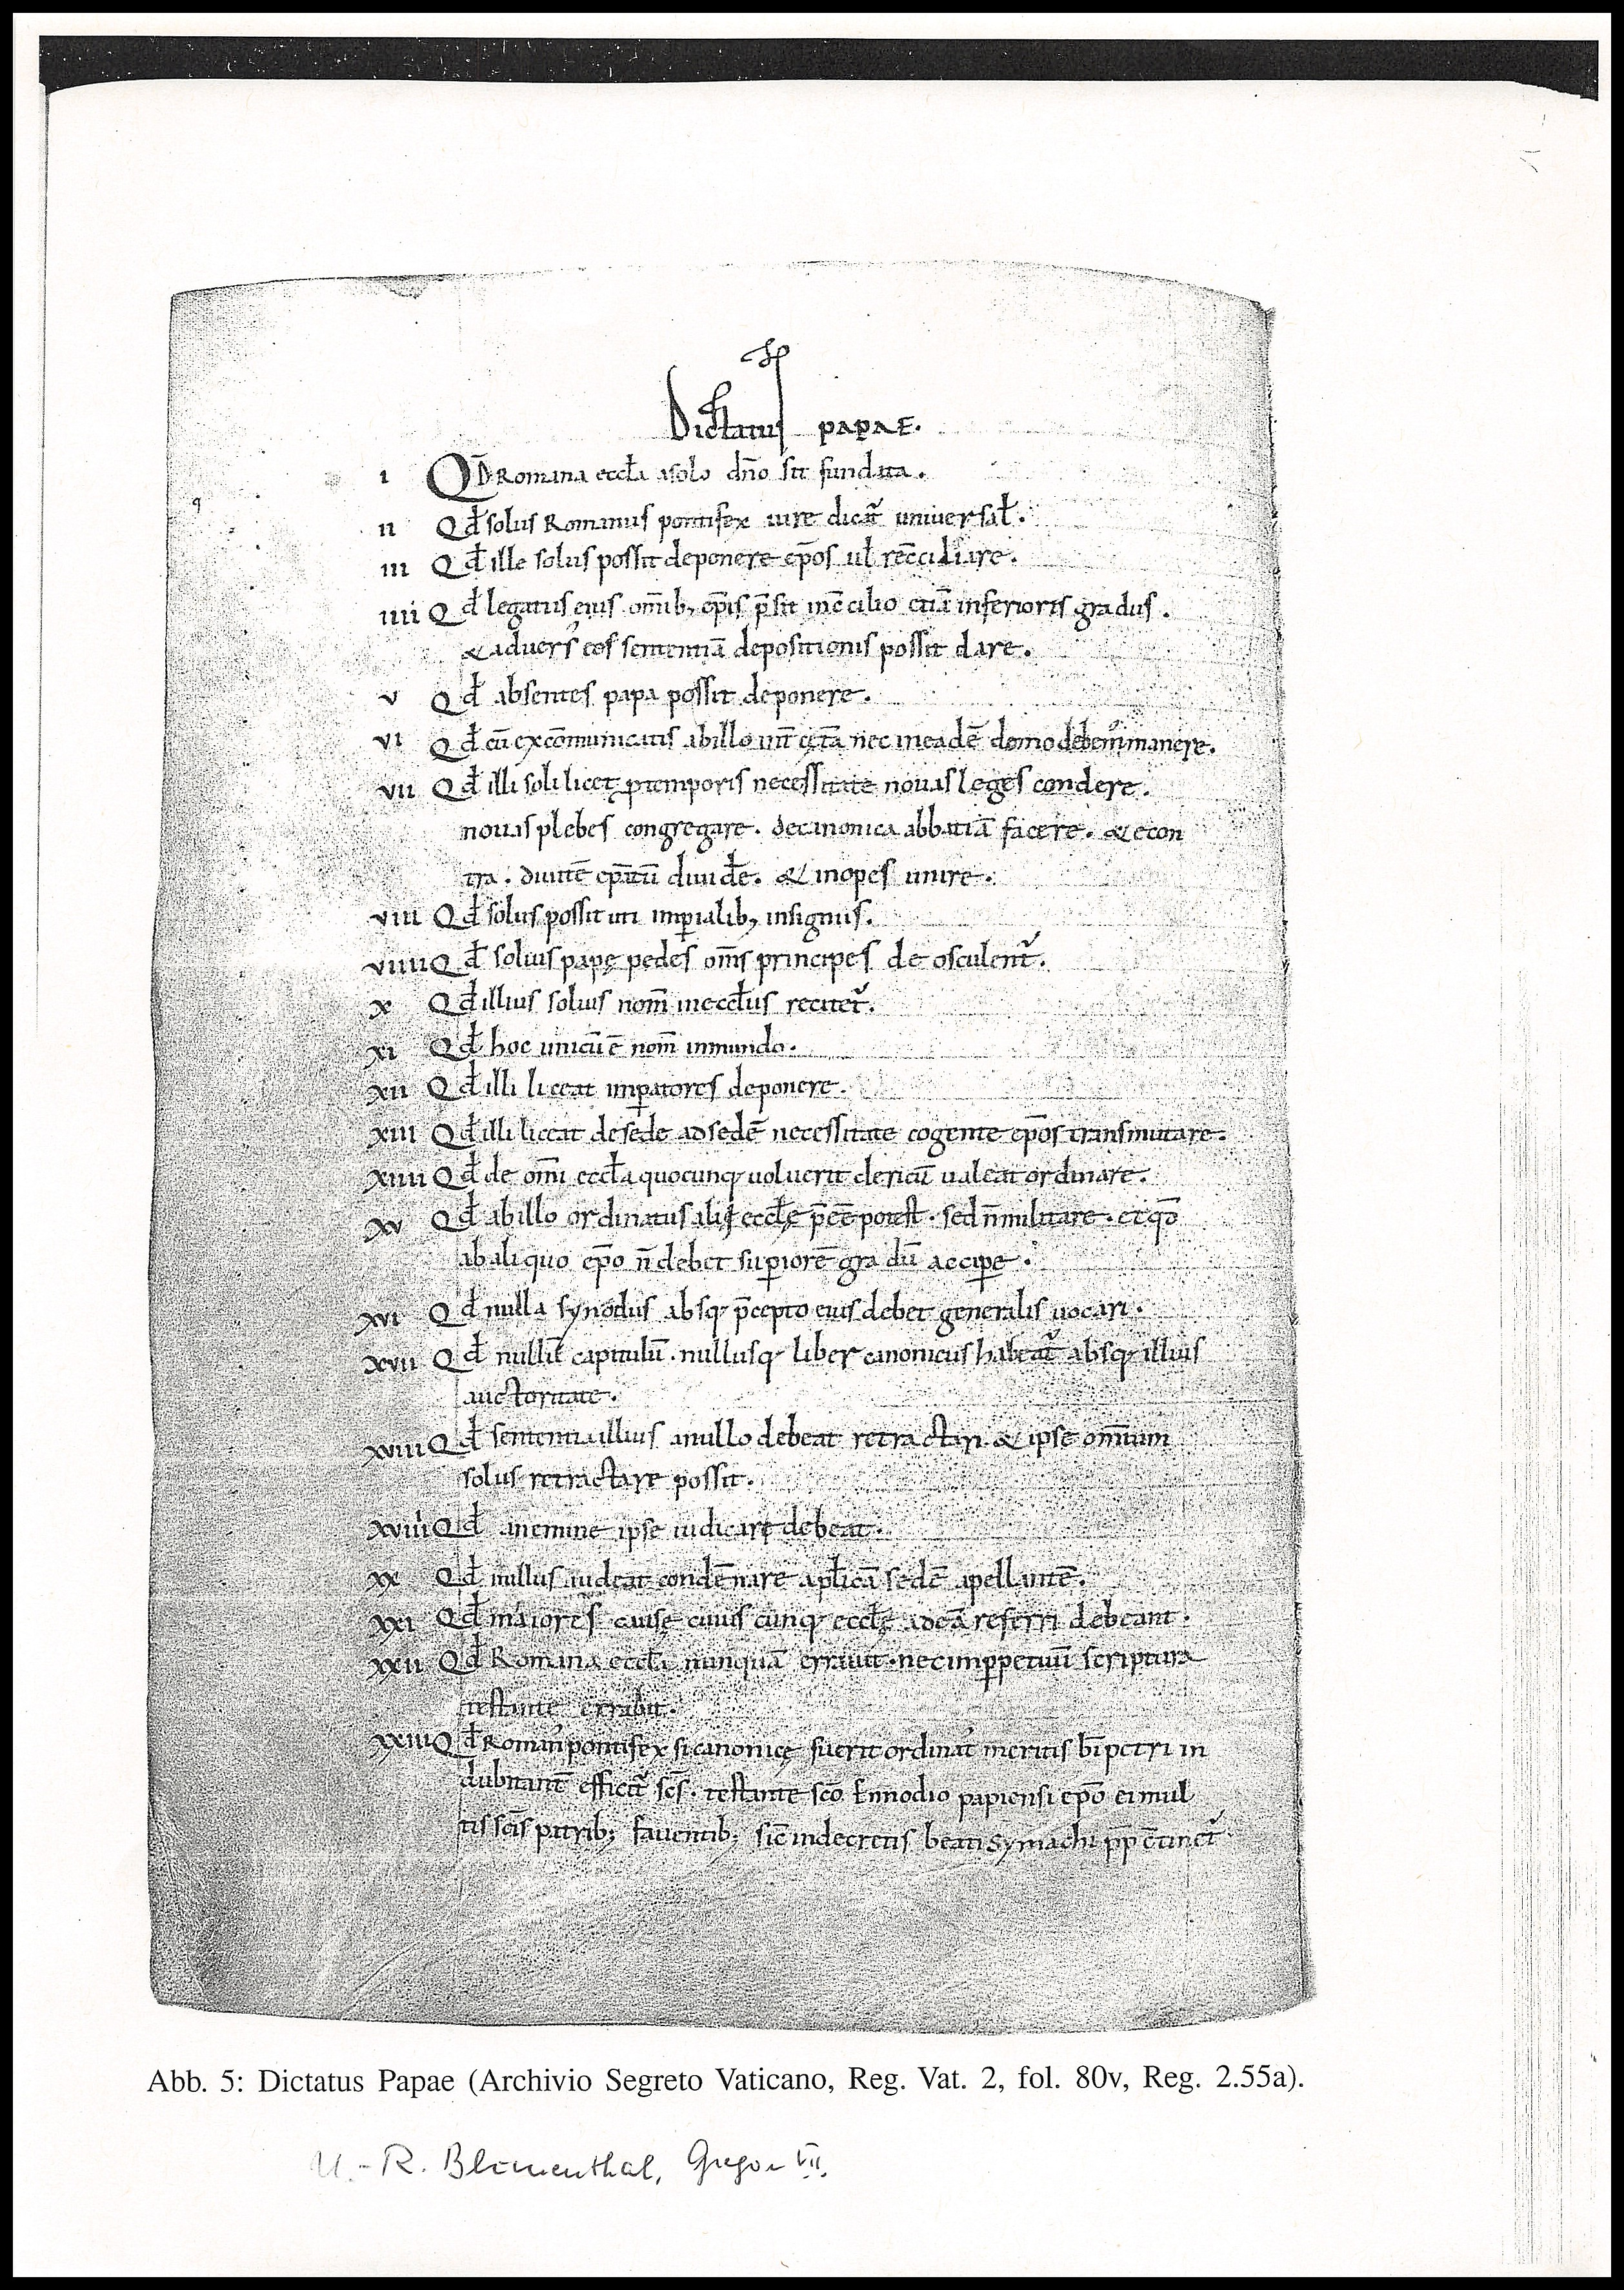 Dictatus papae.
i Qđ Romana eccła a solo dño sit fundata.
ii Qđ solus Romanus pontifex iure dicat̃ universał.
iii Qđ ille solus possit deponere ep̄os uł recc̄iliare.
iiii Qđ legatus eius om̄ib; ep̄is p̄sit in c̄cilio etiā inferioris gradus.
& adversͥ eos sententiā depositionis possit dare.
v Qđ absentes papa possit deponere.
vi Qđ cū excōmunicatis ab illo int̄ cęt̄a nec in eadē domo debemꝰ manere.
vii Qđ illi soli licet p̱ temporis necessitate novas leges condere.
novas plebes congregare. de canonica abbatiā facere. & econ
tra. divitē ep̄atū divid̄e. & inopes unire.
viii Qđ solus possit uti imp̱ialib; insigniis.
viiii Qđ solius papę pedes om̄s principes deosculent̃.
x Qđ illius solius nom̄ in eccłiis recitet̃.
xi Qđ hoc unicū ē nom̄ in mundo.
xii Qđ illi liceat imp̱atores deponere.
xiii Qđ illi liceat de sede ad sedē necessitate cogente ep̄os transmutare.
xiiii Qđ de om̄i eccła quocunq; voluerit clericū valeat ordinare.
xv Qđ ab illo ordinatus alii eccłę p̄eē potest. sed n̄ militare. et qđ
ab aliquo ep̄o n̄ debet sup̱iorē gradū accip̱e.
xvi Qđ nulla synodus absq; p̄cepto eius debet generalis vocari.
xvii Qđ nullū capitulū. nullusq; liber canonicus habeat̃ absq; illius
auctoritate.
xviii Qđ sententia illius a nullo debeat retractari & ipse om̄ium
solus retractare possit.
xviiii Qđ a nemine ipse iudicare debeat.
xx Qđ nullus audeat condēnare apłicā sedē apellantē.
xxi Qđ maiores causę cuiuscunq; eccłę ad eā referri debeant.
xxii Qđ Romana eccła nunquā erravit. nec imp̱petuū scriptura
testante errabit.
xxiii Qđ Romanꝰ pontifex si canonicę fuerit ordinatꝰ meritis b̄i petri in
dubitant̄ efficit̃ sc̄s. testante sc̄o Ennodio papiensi ep̄o ei mul
tis sc̄is patrib; faventib; sic̄ in decretis beati Symachi p̄p c̄tinet̃
Abb. 5: Dictatus Papae (Archivio Segreto Vaticano, Reg. Vat. 2, fol. 80v, Reg. 2.55a).
U.-R. Blumenthal, Gregor VII.